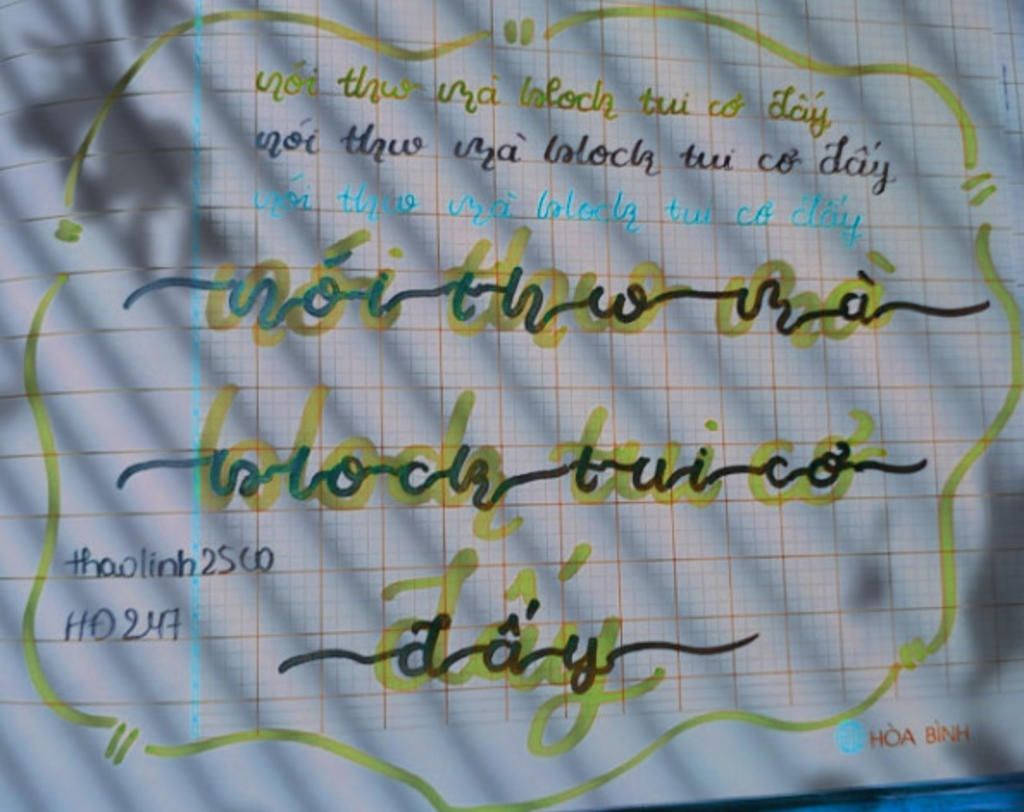 nói thư mà block tui cơ đấy
nói thư mà block tui cơ đấy
nói thư mà block tui cơ đấy
nói thư mà
block tui cơ
đấy
thaolinh2SCO
HĐ247
HÒA BÌNH